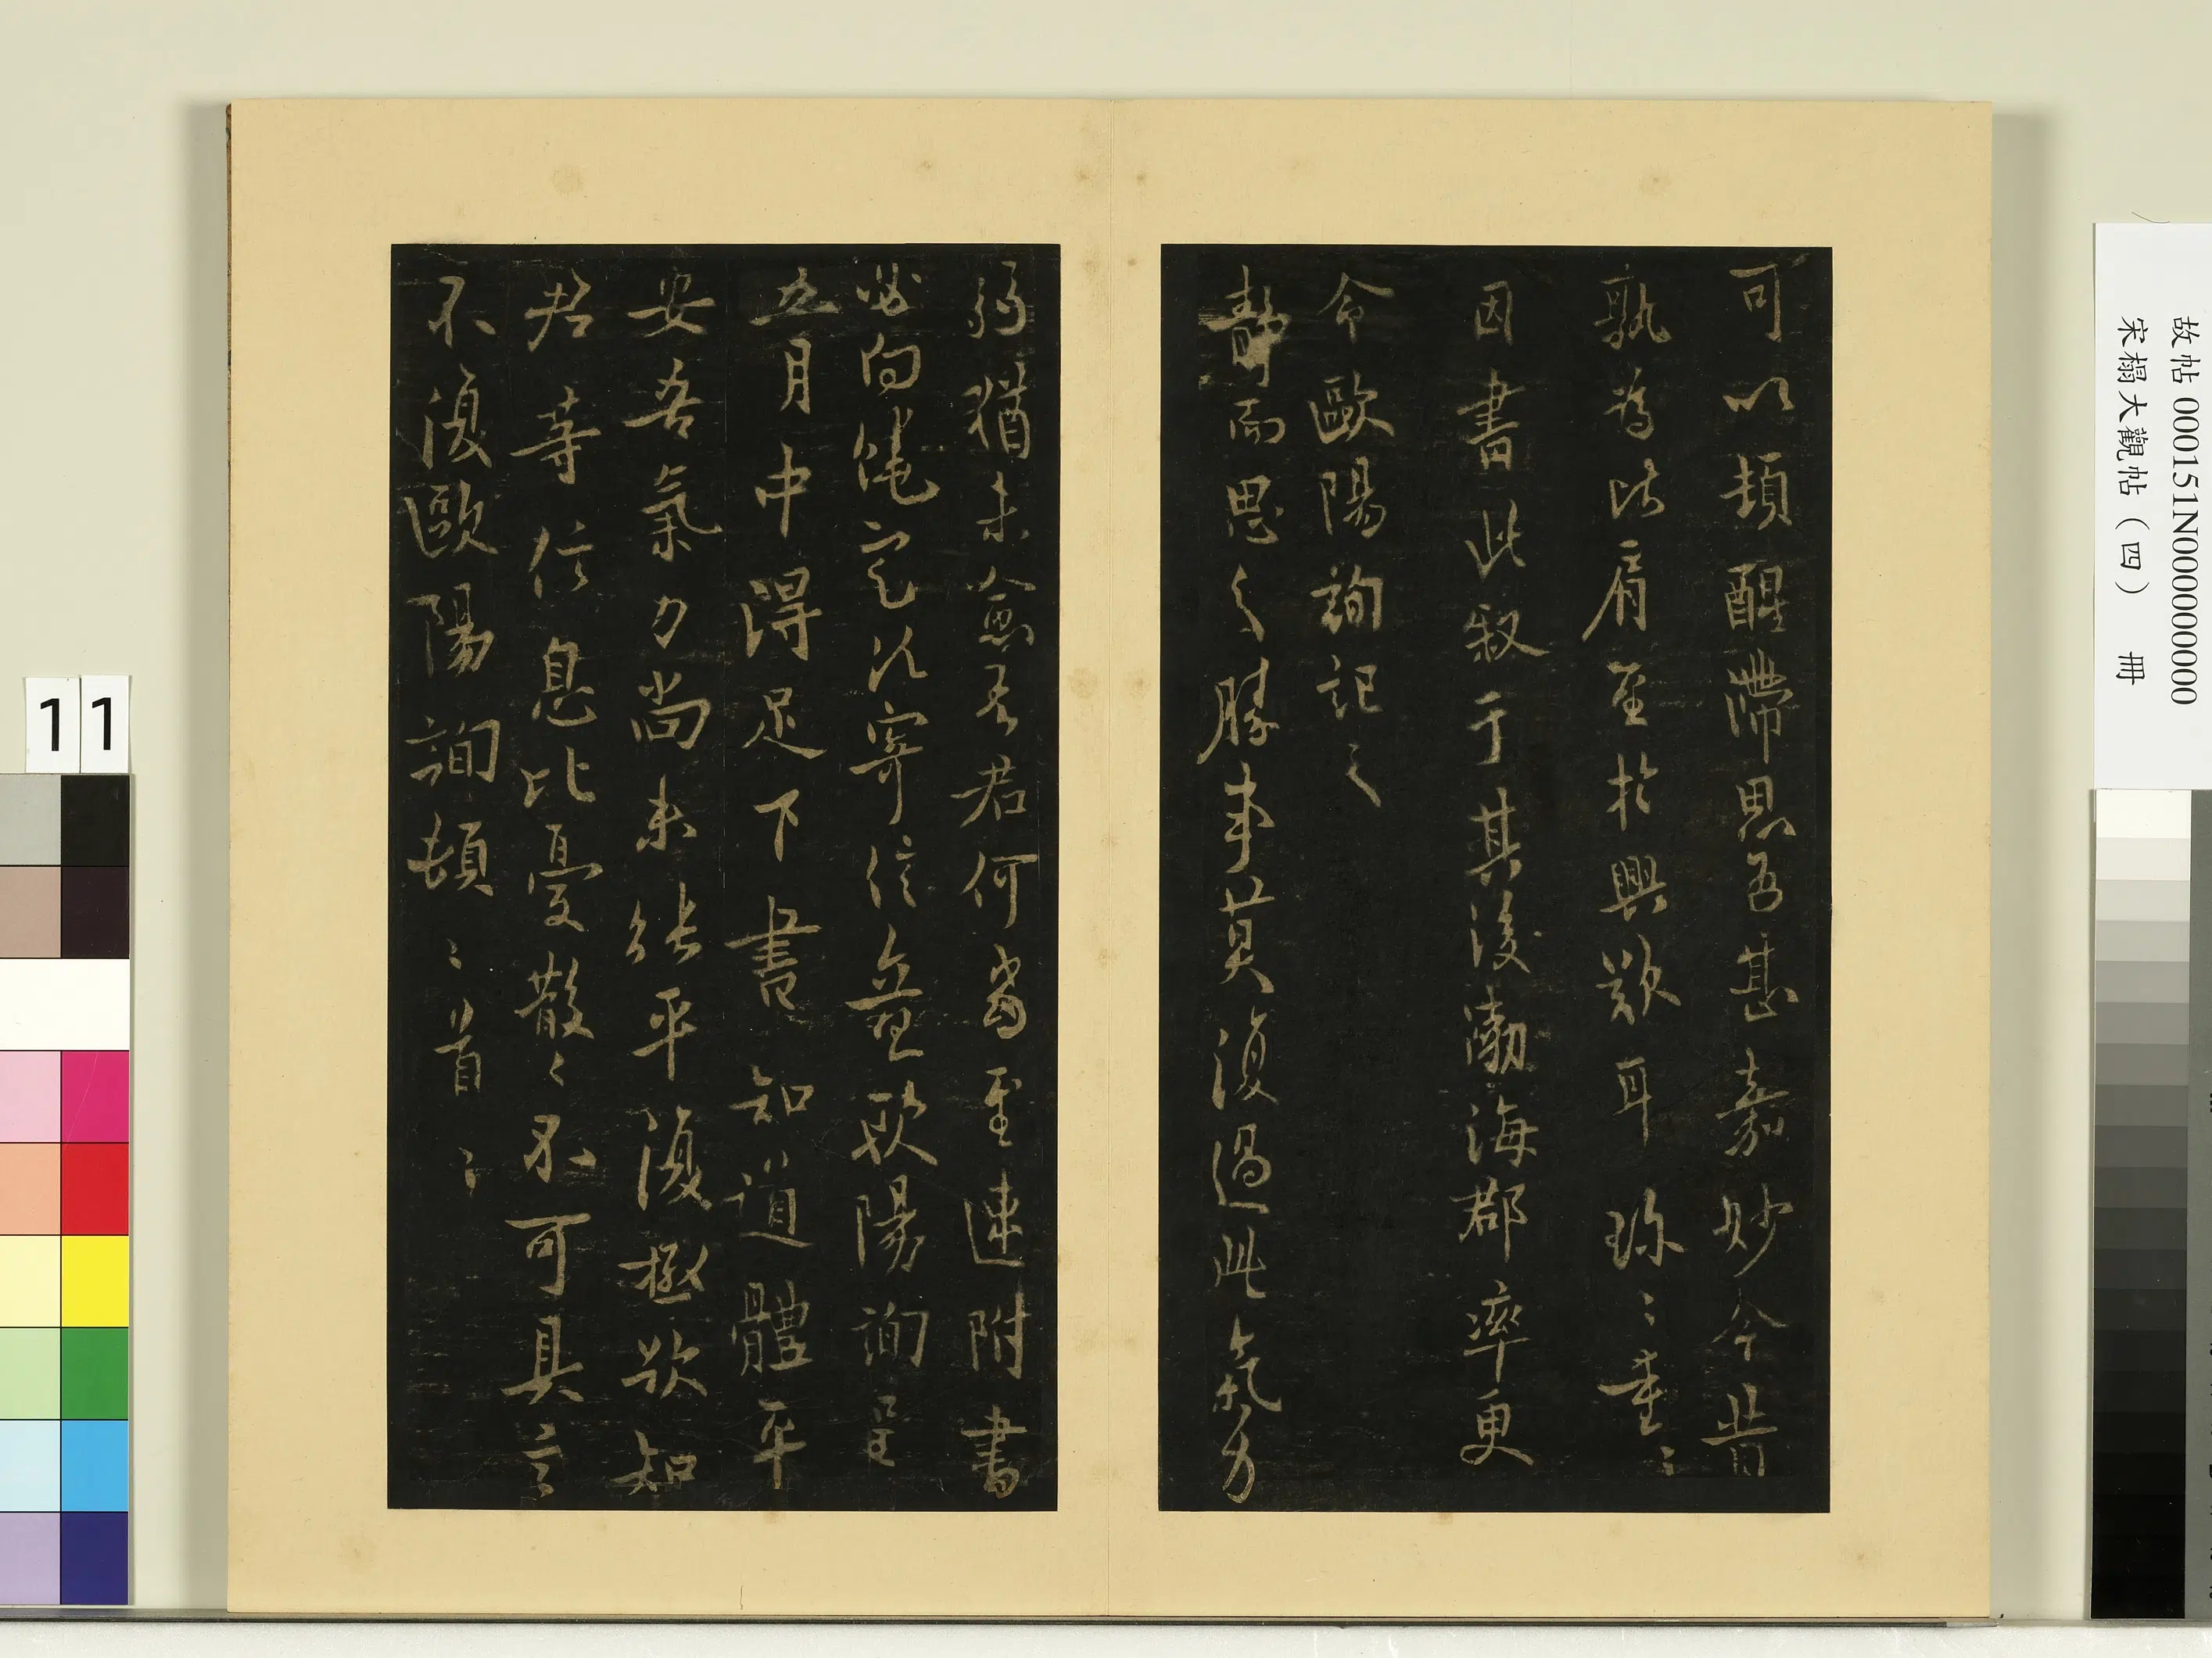 可以頓醒滯思吾甚嘉妙今昔
孰為比肩至於興歎耳珍〻重〻
因書此叙于其後渤海郡率更
令歐陽詢記之
靜而思〻勝事莫復過此氣力
弱猶未愈吾君何當至速附書
必向饒定以寄信無歐陽詢呈
五月中得足下書知道體平
安吾氣力尚未能平復極欲知
君等信息比憂散〻不可具言
不復歐陽詢頓〻首〻
故帖 000151N000000000
宋榻大觀帖（四） 冊
11